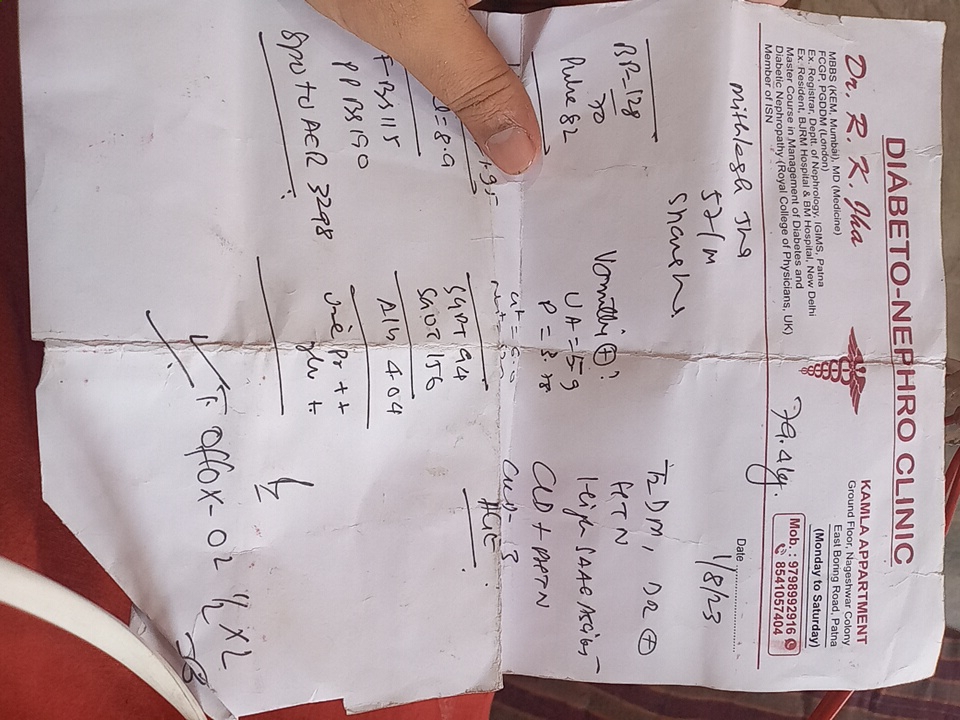 DIABETO-NEPHRO CLINIC
Dr. R. K. Jha
MBBS (KEM, Mumbai), MD (Medicine)
FCGP, PGDDM (London)
Ex. Registrar, Deptt. of Nephrology, IGIMS, Patna
Ex. Resident, BJRM Hospital & BM Hospital, New Delhi
Master Course in Management of Diabetes and
Diabetic Nephropathy (Royal College of Physicians, UK)
Member of ISN
KAMLA APPARTMENT
Ground Floor, Nageshwar Colony
East Boring Road, Patna
(Monday to Saturday)
Mob. : 9798992916
8541057404
Date 1/8/23
79.4kg.
Mithlesh Jha
57/M
BP-128
70
Pulse 82
Vomitti +
UA = 5.9
P = 3.78
T2DM, DR +
HTN
CLD + HTN
= 8.9
SGPT 94
SGOT 156
FBS 115
PPBS 190
Alb 4.04
Pr ++
glu +
Spot ACR 3298
T. Offox-O2 1/2 x 2